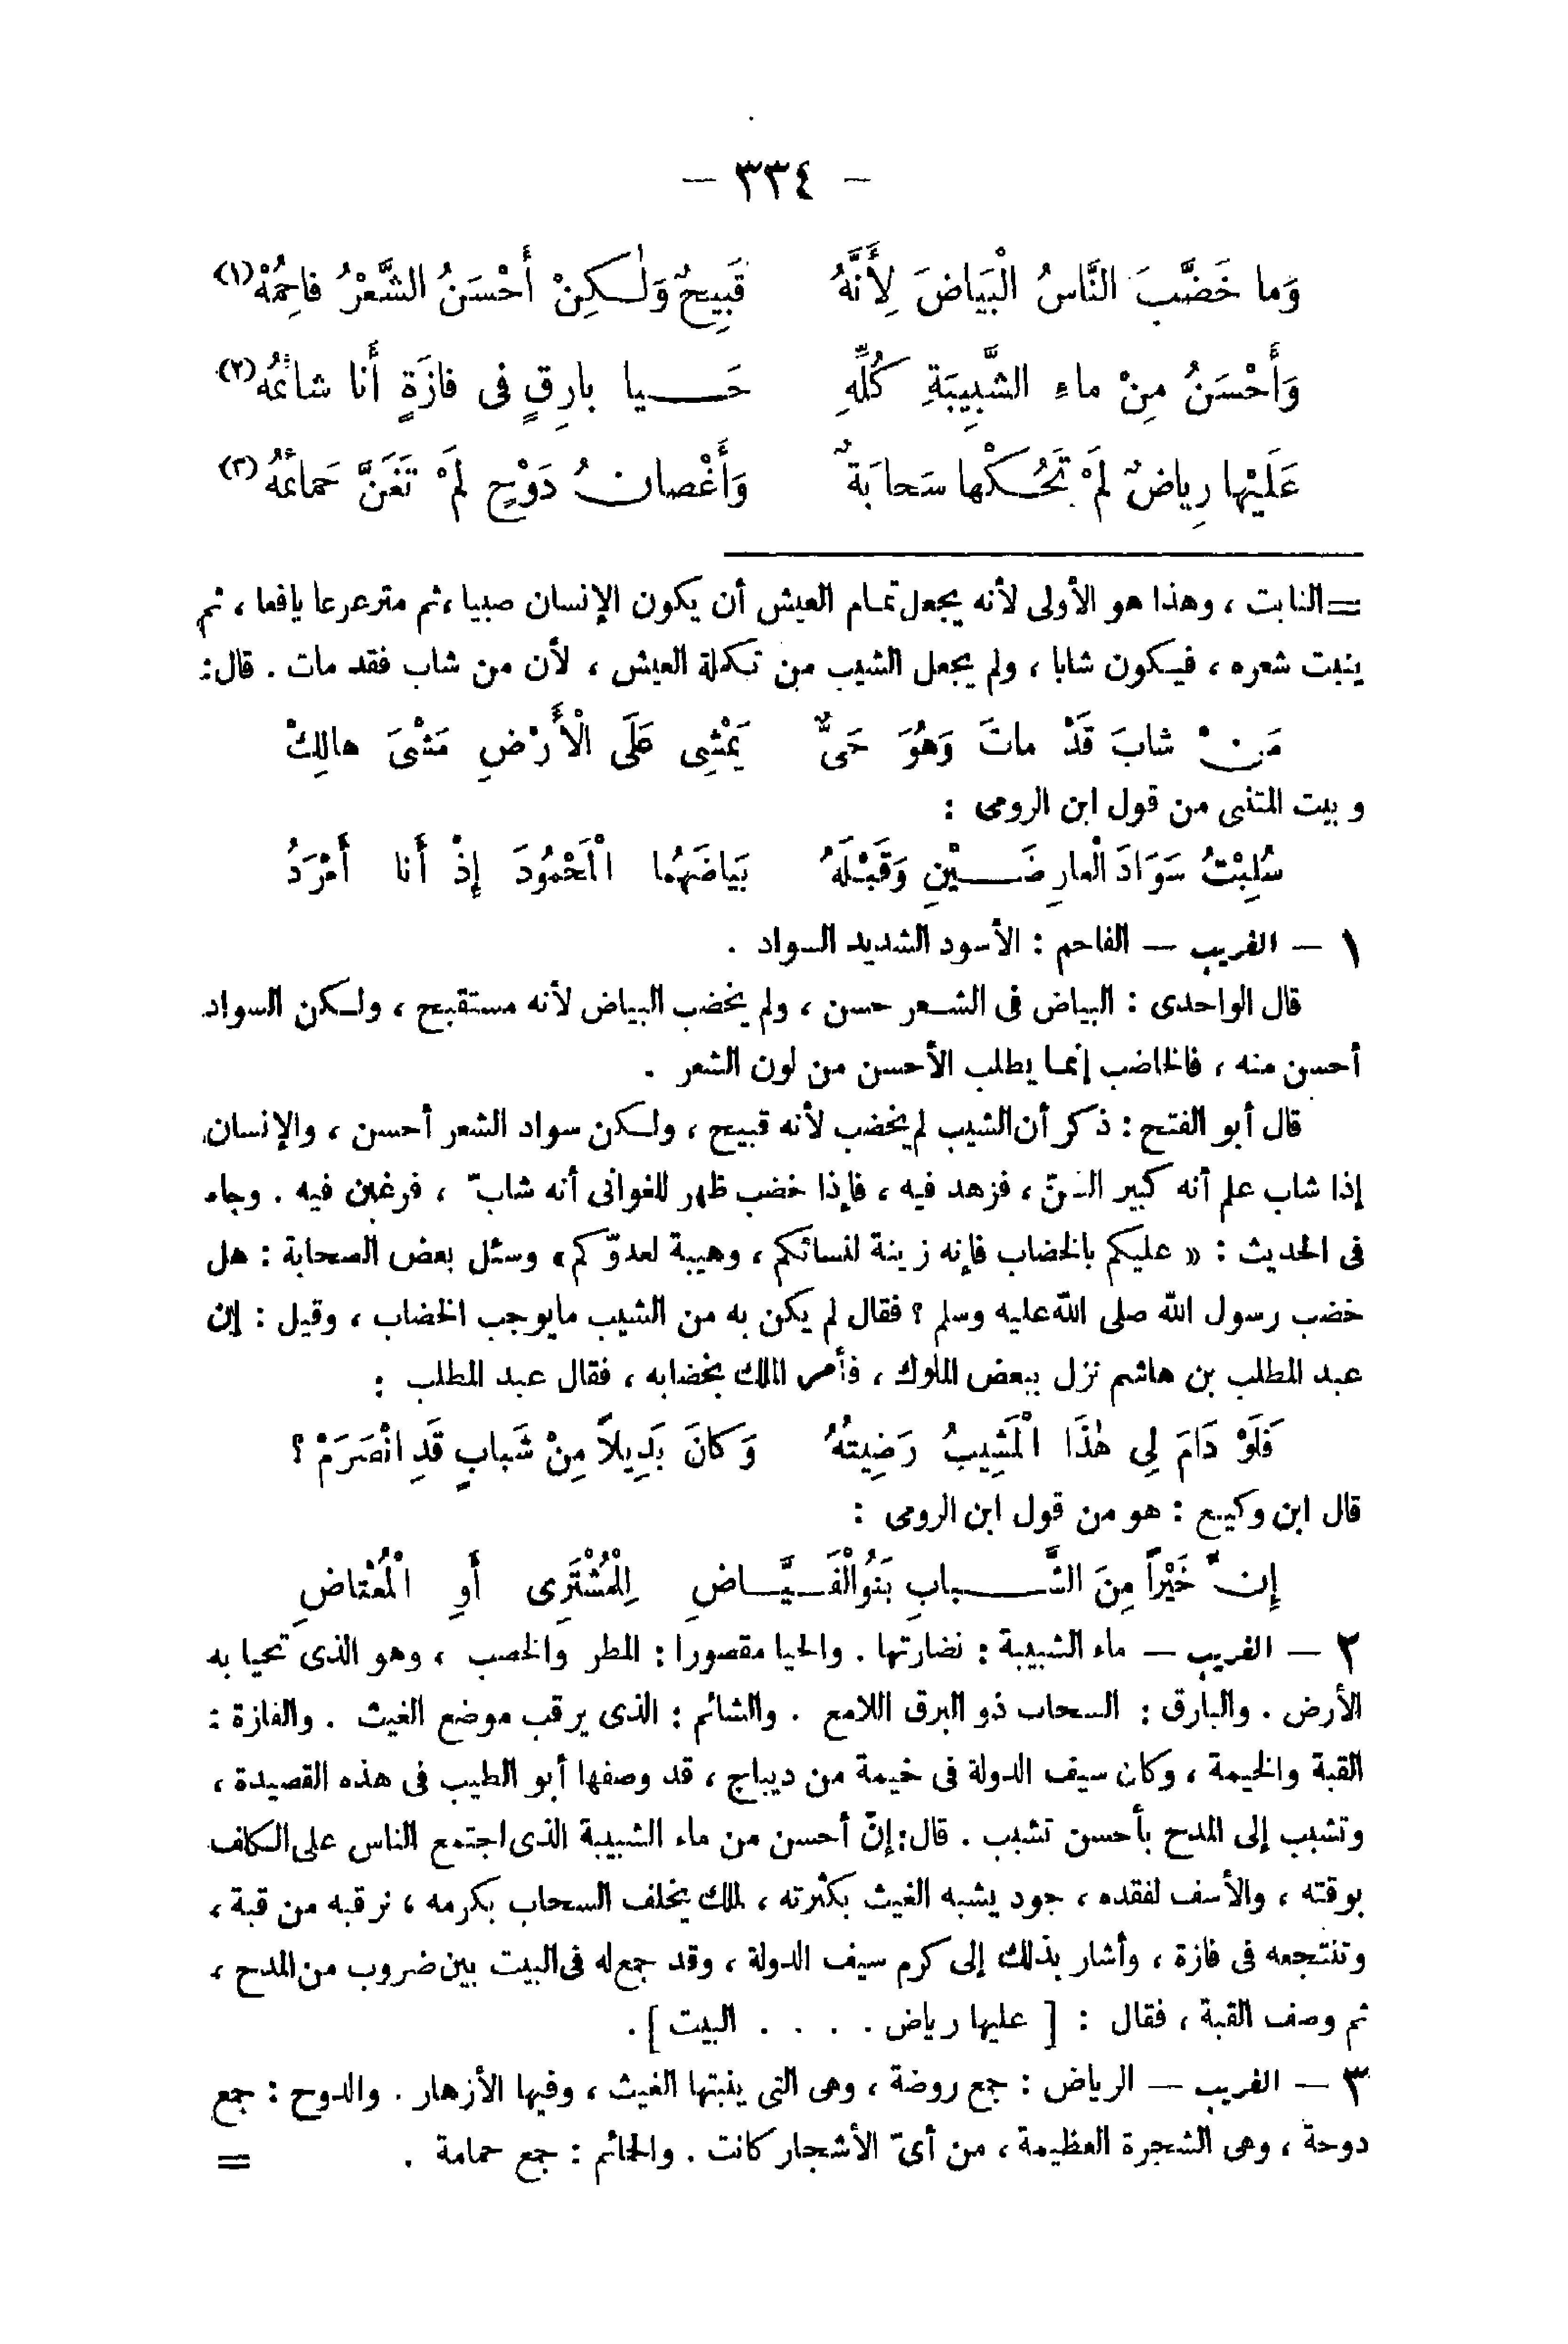 - ٣٣٤ -
وَما خَضَّبَ النَّاسُ الْبَيَاضَ لِأَنَّهُ قَبِيحٌ وَلٰكِنْ أَحْسَنُ الشَّعْرُ فاحِمُهْ (١)
وَأَحْسَنُ مِنْ ماءِ الشَّبِيبَةِ كُلِّهِ حَيا بارِقٍ فى فازَةٍ أَنا شائمُهْ (٢)
عَلَيْها رِياضٌ لَمْ تَحُكْها سَحابَةٌ وَأَغْصانُ دَوْحٍ لَمْ تَغَنَّ حَمائمُهْ (٣)
=النابت ، وهذا هو الأولى لأنه يجعل تمام العيش أن يكون الإنسان صبيا ، ثم مترعرعا يافعا ، ثم
ينبت شعره ، فيكون شابا ، ولم يجعل الشيب من تكملة العيش ، لأن من شاب فقد مات . قال :
مَنْ شابَ قَدْ ماتَ وَهُوَ حَىٌّ يَمْشِى عَلَى الْأَرْضِ مَشْىَ هالِكْ
وبيت المتنبى من قول ابن الرومى :
سُلِبْتُ سَوَادَ الْعارِضَيْنِ وَقَبْلَهُ بَياضَهُما الْمَحْمُودَ إِذْ أَنا أَمْرَدُ
١ - الغريب - الفاحم : الأسود الشديد السواد .
قال الواحدى : البياض فى الشعر حسن ، ولم يخضب البياض لأنه مستقبح ، ولكن السواد
أحسن منه ، فالخاضب إنما يطلب الأحسن من لون الشعر .
قال أبو الفتح : ذكر أن الشيب لم يخضب لأنه قبيح ، ولكن سواد الشعر أحسن ، والإنسان
إذا شاب علم أنه كبير السنّ ، فزهد فيه ، فإذا خضب ظهر للغوانى أنه شابّ ، فرغبن فيه . وجاء
فى الحديث : « عليكم بالخضاب فإنه زينة لنسائكم ، وهيبة لعدوّكم » وسئل بعض الصحابة : هل
خضب رسول الله صلى الله عليه وسلم ؟ فقال لم يكن به من الشيب مايوجب الخضاب ، وقيل : إن
عبد المطلب بن هاشم نزل ببعض الملوك ، فأمر الملك بخضابه ، فقال عبد المطلب :
فَلَوْ دَامَ لِى هٰذَا الْمَشِيبُ رَضِيتُهُ وَكانَ بَدِيلاً مِنْ شَبابٍ قَدِ انْصَرَمْ ؟
قال ابن وكيع : هو من قول ابن الرومى :
إِنَّ خَيْراً مِنَ الشَّبابِ بَنُو الْفَيَّاضِ لِلْمُشْتَرِى أَوِ الْمُعْتاضِ
٢ - الغريب - ماء الشبيبة : نضارتها . والحيا مقصورا : المطر والخصب ، وهو الذى تحيا به
الأرض . والبارق : السحاب ذو البرق اللامع . والشائم : الذى يرقب موضع الغيث . والفازة :
القبة والخيمة ، وكان سيف الدولة فى خيمة من ديباج ، قد وصفها أبو الطيب فى هذه القصيدة ،
وتشبب إلى المدح بأحسن تشبب . قال : إنّ أحسن من ماء الشبيبة الذى اجتمع الناس على الكلف
بوقته ، والأسف لفقده ، جود يشبه الغيث بكثرته ، لملك يخلف السحاب بكرمه ، نرقبه من قبة ،
وتنتجعه فى فازة ، وأشار بذلك إلى كرم سيف الدولة ، وقد جمع له فى البيت بين ضروب من المدح ،
ثم وصف القبة ، فقال : [ عليها رياض . . . . البيت ] .
٣ - الغريب - الرياض : جمع روضة ، وهى التى ينبتها الغيث ، وفيها الأزهار . والدوح : جمع
دوحة ، وهى الشجرة العظيمة ، من أىّ الأشجار كانت . والحمائم : جمع حمامة . =